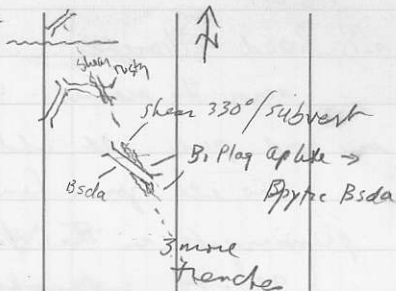 N
shear rusty
shear 330°/subvert
Bi Plag aplite →
Bpytric Bsda
Bsda
3 more
trenches